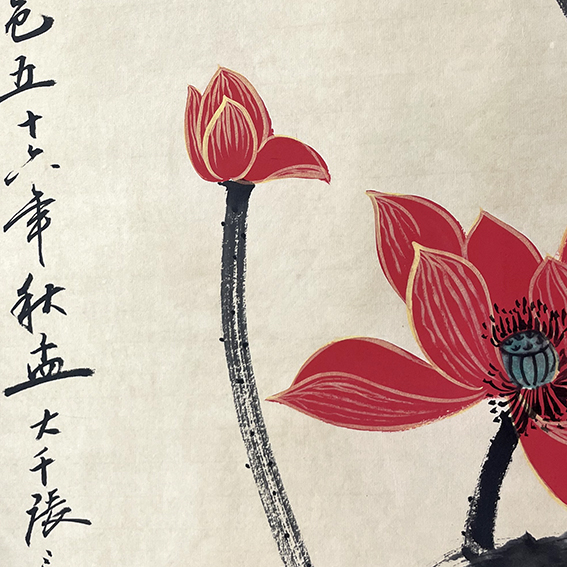 色五十六年秋孟大千張